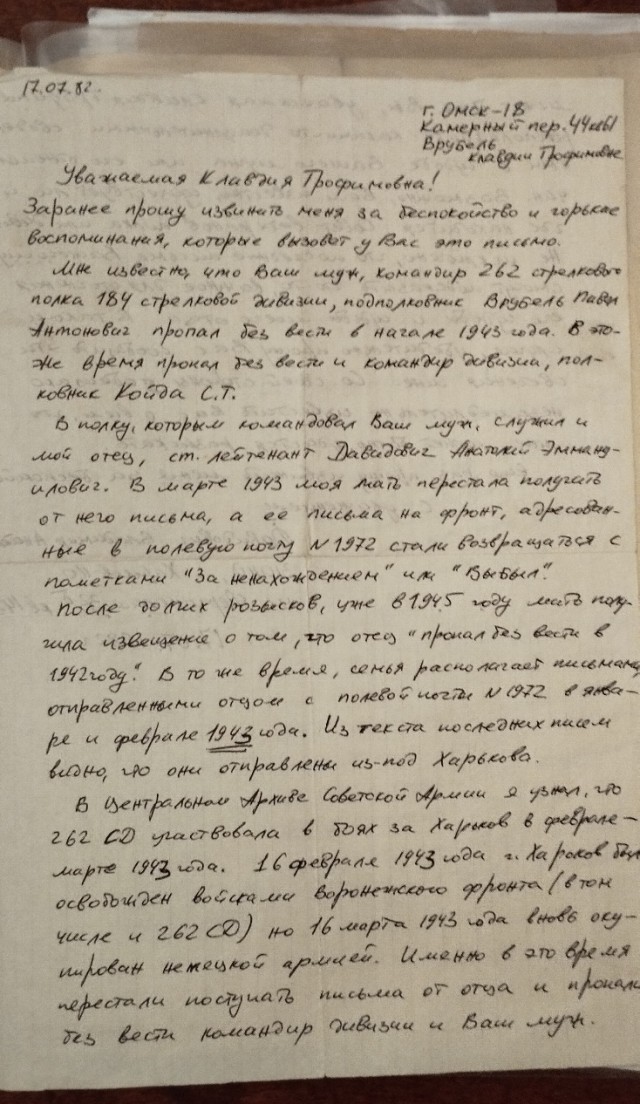 17.07.82.
г. Омск-18
Камерный пер. 44 кв 61
Врубель
Клавдии Трофимовне
Уважаемая Клавдия Трофимовна!
Заранее прошу извинить меня за беспокойство и горькие
воспоминания, которые вызовет у Вас это письмо.
Мне известно, что Ваш муж, командир 262 стрелкового
полка 184 стрелковой дивизии, подполковник Врубель Павел
Антонович пропал без вести в начале 1943 года. В это-
же время пропал без вести и командир дивизии, пол-
ковник Койда С.Т.
В полку, которым командовал Ваш муж, служил и
мой отец, ст. лейтенант Давидович Анатолий Эмману-
илович. В марте 1943 моя мать перестала получать
от него письма, а ее письма на фронт, адресован-
ные в полевую почту N 1972 стали возвращаться с
пометками "За ненахождением" или "Выбыл".
После долгих розысков, уже в 1945 году мать полу-
чила извещение о том, что отец "пропал без вести в
1942 году." В то же время, семья располагает письмами,
отправленными отцом с полевой почты N 1972 в янва-
ре и феврале 1943 года. Из текста последних писем
видно, что они отправлены из-под Харькова.
В Центральном Архиве Советской Армии я узнал, что
262 СД участвовала в боях за Харьков в феврале-
марте 1943 года. 16 февраля 1943 года г. Харьков был
освобожден войсками Воронежского фронта (в том
числе и 262 СД) но 16 марта 1943 года вновь оку-
пирован немецкой армией. Именно в это время
перестали поступать письма от отца и пропали
без вести командир дивизии и Ваш муж.